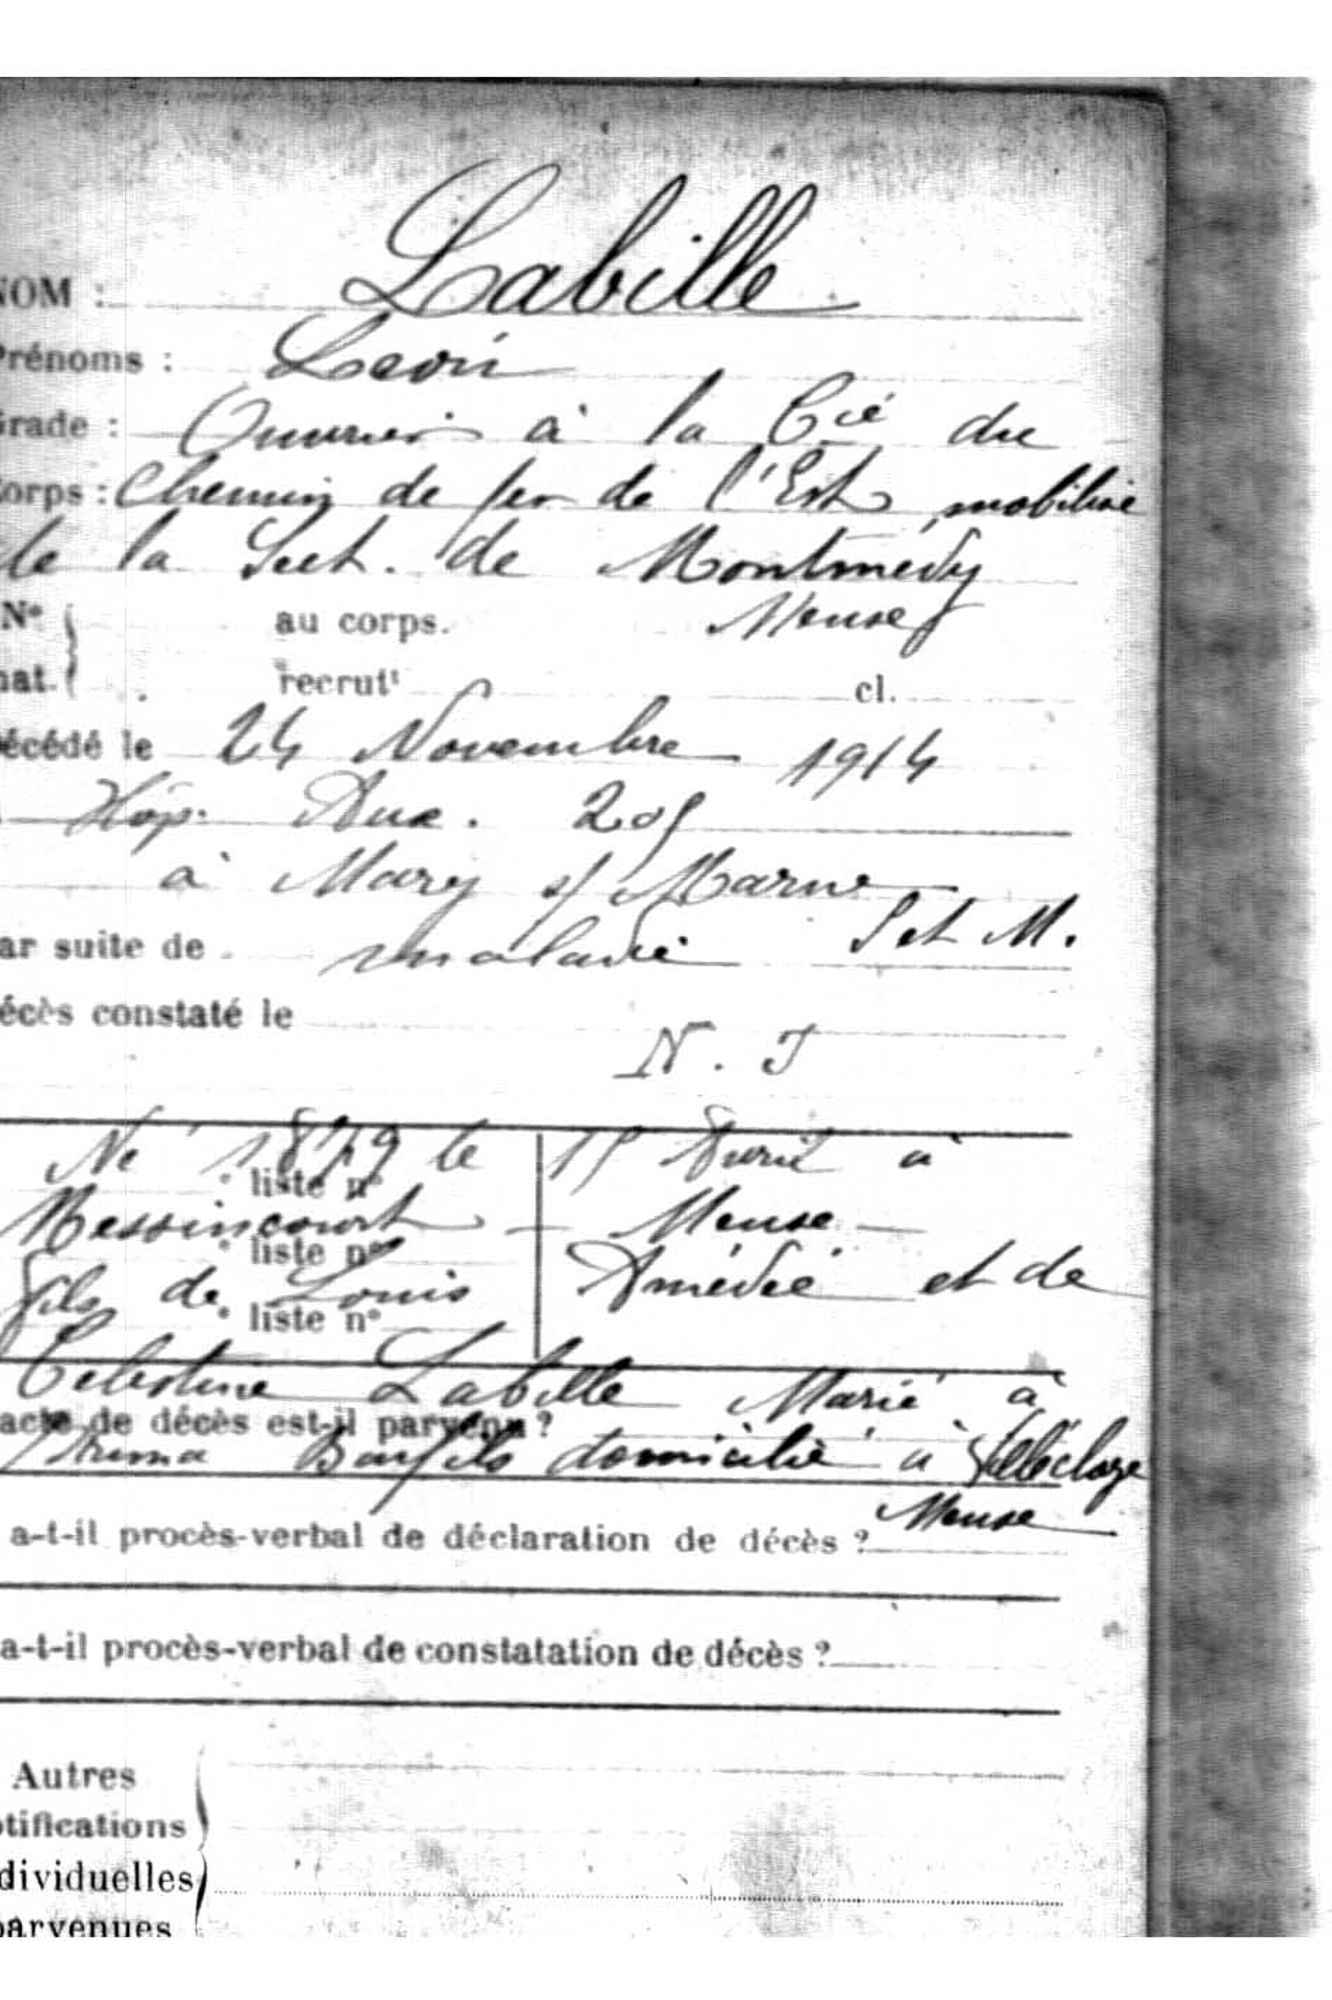 NOM : Labille
Prénoms : Leon
Grade : Ouvrier à la Cie du
Corps : Chemin de fer de l'Est, mobilisé
de la Sect. de Montmédy
N° au corps. Meuse
mat. recrutt cl.
Décédé le 24 Novembre 1914
Hôp. Aux. 205
à Mary s/ Marne
par suite de maladie S et M.
Décès constaté le
N. J
Né 1849 le 15 Avril à
liste n°
Messincourt Meuse
liste n°
fils de Louis Amédée et de
liste n°
Celestine Labille Marié à
acte de décès est-il parvenu ?
domicilié à
Meuse
a-t-il procès-verbal de déclaration de décès ?
a-t-il procès-verbal de constatation de décès ?
Autres
notifications
individuelles
parvenues